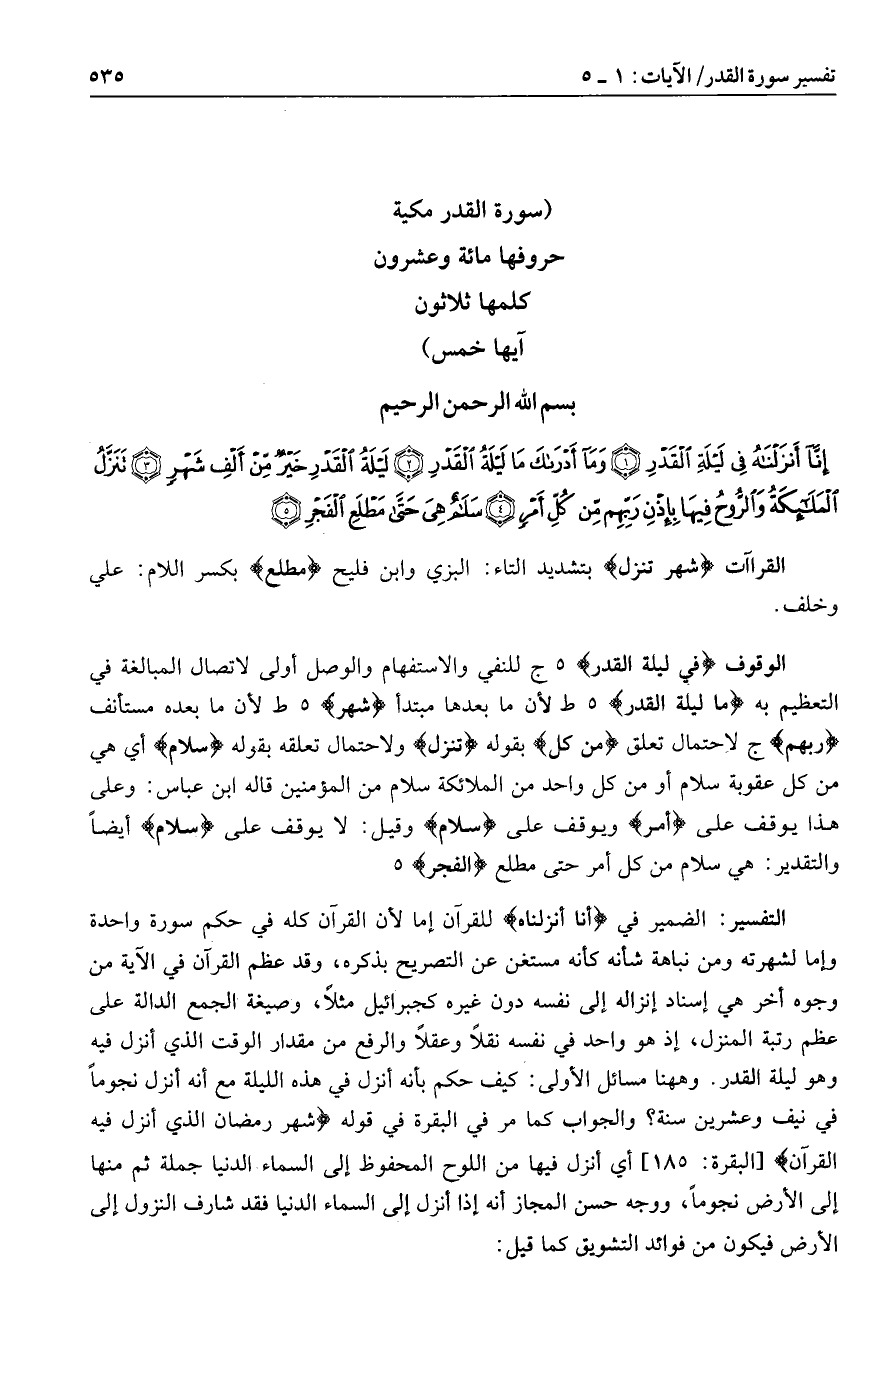 تفسير سورة القدر/ الآيات: ١ ـ ٥
٥٣٥
(سورة القدر مكية
حروفها مائة وعشرون
كلمها ثلاثون
آيها خمس)
بسم الله الرحمن الرحيم
إِنَّآ أَنزَلْنَـٰهُ فِى لَيْلَةِ ٱلْقَدْرِ ۝١ وَمَآ أَدْرَىٰكَ مَا لَيْلَةُ ٱلْقَدْرِ ۝٢ لَيْلَةُ ٱلْقَدْرِ خَيْرٌ مِّنْ أَلْفِ شَهْرٍ ۝٣ تَنَزَّلُ
ٱلْمَلَـٰٓئِكَةُ وَٱلرُّوحُ فِيهَا بِإِذْنِ رَبِّهِم مِّن كُلِّ أَمْرٍ ۝٤ سَلَـٰمٌ هِىَ حَتَّىٰ مَطْلَعِ ٱلْفَجْرِ ۝٥
القراآت ﴿شهر تنزل﴾ بتشديد التاء: البزي وابن فليح ﴿مطلع﴾ بكسر اللام: علي
وخلف.
الوقوف ﴿في ليلة القدر﴾ ٥ ج للنفي والاستفهام والوصل أولى لاتصال المبالغة في
التعظيم به ﴿ما ليلة القدر﴾ ٥ ط لأن ما بعدها مبتدأ ﴿شهر﴾ ٥ ط لأن ما بعده مستأنف
﴿ربهم﴾ ج لاحتمال تعلق ﴿من كل﴾ بقوله ﴿تنزل﴾ ولاحتمال تعلقه بقوله ﴿سلام﴾ أي هي
من كل عقوبة سلام أو من كل واحد من الملائكة سلام من المؤمنين قاله ابن عباس: وعلى
هذا يوقف على ﴿أمر﴾ ويوقف على ﴿سلام﴾ وقيل: لا يوقف على ﴿سلام﴾ أيضاً
والتقدير: هي سلام من كل أمر حتى مطلع ﴿الفجر﴾ ٥
التفسير: الضمير في ﴿أنا أنزلناه﴾ للقرآن إما لأن القرآن كله في حكم سورة واحدة
وإما لشهرته ومن نباهة شأنه كأنه مستغن عن التصريح بذكره، وقد عظم القرآن في الآية من
وجوه أخر هي إسناد إنزاله إلى نفسه دون غيره كجبرائيل مثلاً، وصيغة الجمع الدالة على
عظم رتبة المنزل، إذ هو واحد في نفسه نقلاً وعقلاً والرفع من مقدار الوقت الذي أنزل فيه
وهو ليلة القدر. وههنا مسائل الأولى: كيف حكم بأنه أنزل في هذه الليلة مع أنه أنزل نجوماً
في نيف وعشرين سنة؟ والجواب كما مر في البقرة في قوله ﴿شهر رمضان الذي أنزل فيه
القرآن﴾ [البقرة: ١٨٥] أي أنزل فيها من اللوح المحفوظ إلى السماء الدنيا جملة ثم منها
إلى الأرض نجوماً، ووجه حسن المجاز أنه إذا أنزل إلى السماء الدنيا فقد شارف النزول إلى
الأرض فيكون من فوائد التشويق كما قيل: